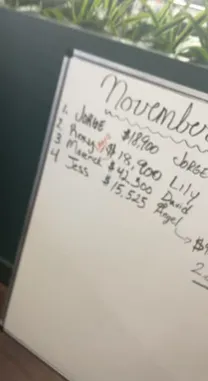 November
1. JORGE $18.900 JORGE
2. Roxy $18,900 Lily
3 Maverick $42,300 David
4 Jess $15.525 Angel